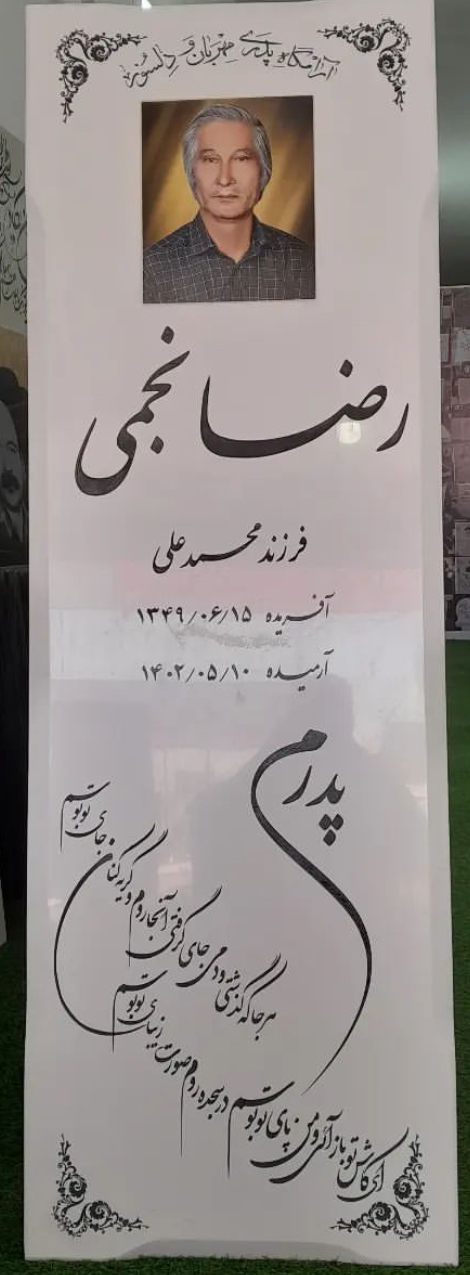 آرامگاه پدری مهربان و دلسوز
رضا نجمی
فرزند محمدعلی
آفریده ۱۳۴۹/۰۶/۱۵
آرمیده ۱۴۰۲/۰۵/۱۰
پدرم
هر جا که گذشتی و دمی جای گرفتی
آنجا روم و گریه کنان جای تو بوسم
ای کاش تو باز آئی و من پای تو بوسم
در سجده روم صورت زیبای تو بوسم